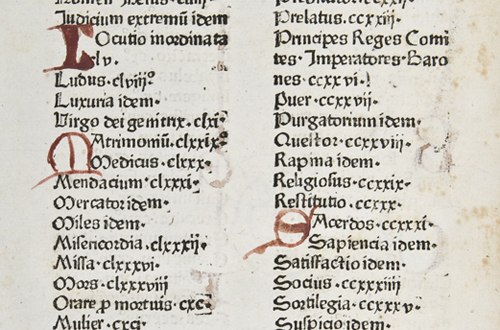 Judicium extremũ idem
Locutio inordinata
lv.
Ludus. clviijº
Luxuria idem.
Virgo dei genitrix. clxi
Matrimoniũ. clxxix
Medicus. clxxx.
Mendacium. clxxxi.
Mercator idem
Miles idem.
Misericordia. clxxxij.
Missa. clxxxvi.
Mors. clxxxviij
Orare ꝓ mortuis. cxc.
Mulier. cxci.
Prelatus. ccxxiij.
Principes Reges Comi
tes. Imperatores. Baro
nes. ccxxvi.
Puer. ccxxvij.
Purgatorium idem.
Questor. ccxxviij.
Rapina idem.
Religiosus. ccxxix.
Restitutio. ccxxx.
Sacerdos. ccxxxi.
Sapiencia idem.
Satisfactio idem.
Socius. ccxxxiij
Sortilegia. ccxxxv.
Suspicio idem.